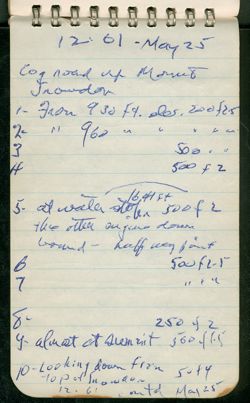 12.61 - May 25
Cog road up Mount
Snowdon
1- From 930 ft. elev. 200 f2.5
2- " 960 " " " "
3 500 "
4 500 f2
1641 ft
5- at water stop 500 f2
the other engine down
bound - half way point
6 500 f2.5
7 " " "
8- 250 f2
9- almost at summit 500 f.5
10- Looking down from
top of Snowdon 50 f4
12.61 May 25